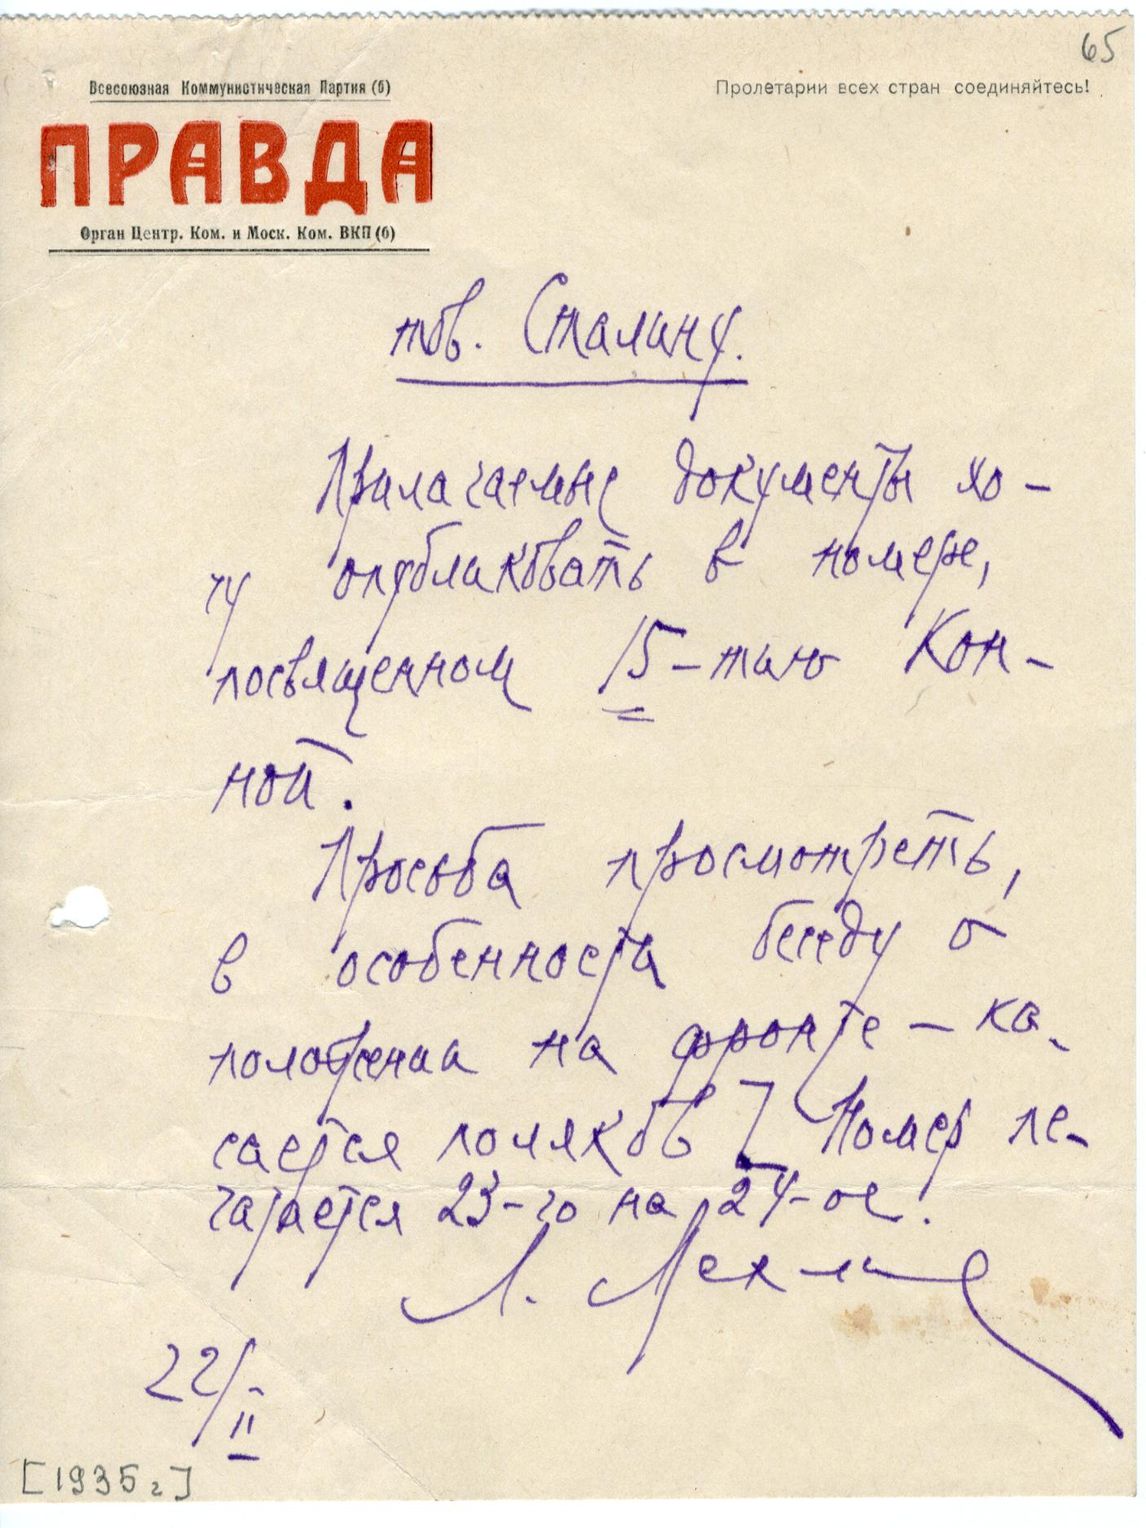 65
Всесоюзная Коммунистическая Партия (б)
Пролетарии всех стран соединяйтесь!
ПРАВДА
Орган Центр. Ком. и Моск. Ком. ВКП (б)
тов. Сталину.
Прилагаемые документы хо-
чу опубликовать в номере,
посвященном 15-тию Кон-
ной.
Просьба просмотреть,
в особенности беседу о
положении на фронте – ка-
сается поляков. Номер пе-
чатается 23-го на 24-ое.
Л. Мехлис
22/II
[1935 г]